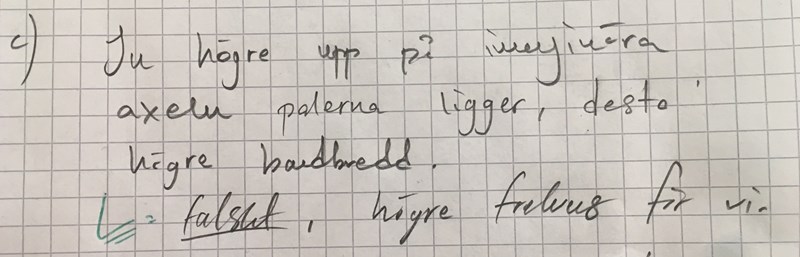 c) Ju högre upp på imaginära
axeln polerna ligger, desto
högre bandbredd.
falskt, högre frekvens får vi.